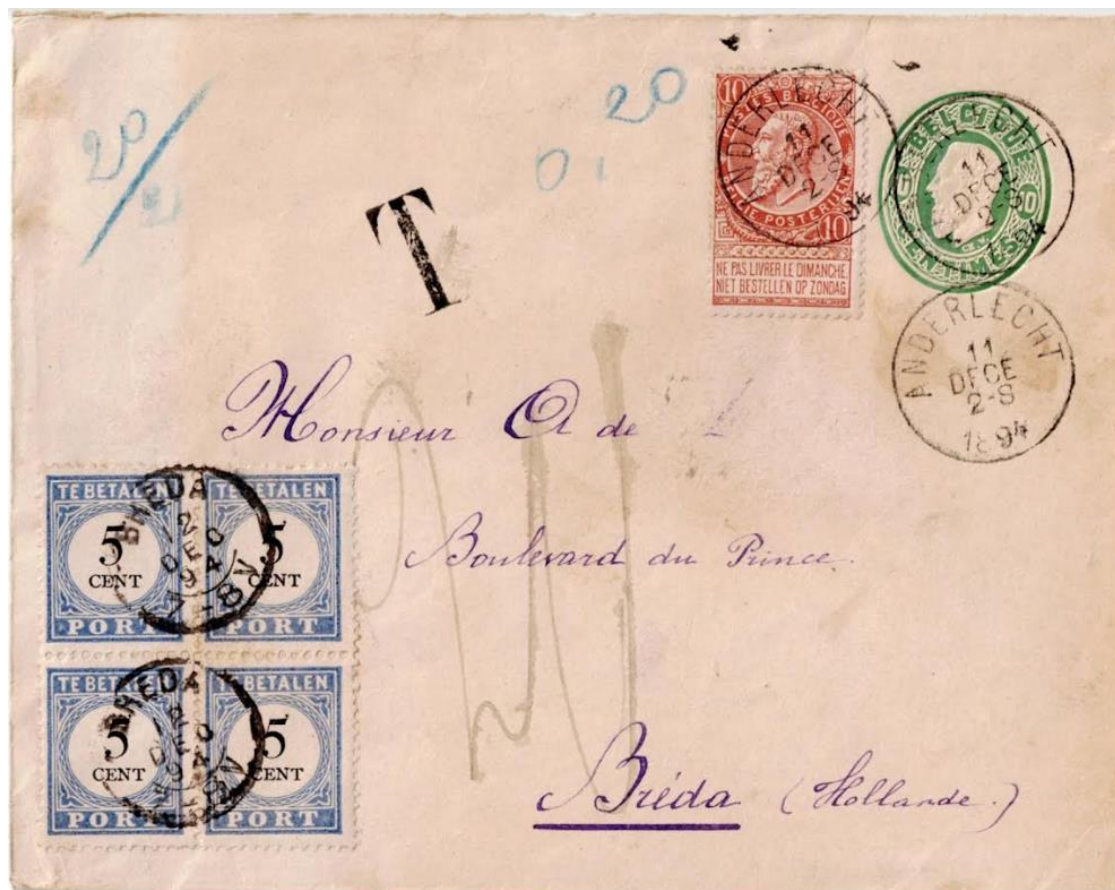 20
20
T
10
POSTES BELGIQUE
BELGIE POSTERIJEN
10
NE PAS LIVRER LE DIMANCHE
NIET BESTELLEN OP ZONDAG
ANDERLECHT
11
DECE
2-8
BELGIQUE
CENTIMES
ANDERLECHT
11
DECE
2-8
94
ANDERLECHT
11
DECE
2-8
1894
Monsieur A de
Boulevard du Prince
Bréda (Hollande.)
TE BETALEN
5
CENT
PORT
TE BETALEN
5
CENT
PORT
BREDA
12
DEC
94
7-8V
TE BETALEN
5
CENT
PORT
TE BETALEN
5
CENT
PORT
BREDA
12
DEC
94
7-8V